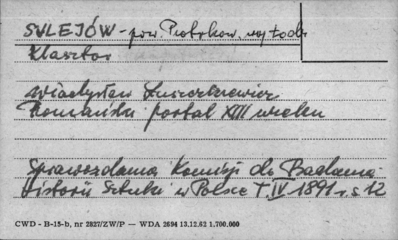 SULEJÓW - pow. Piotrków, woj. Łódź
Klasztor
Władysław Łuszczkiewicz
Romański portal XIII wieku
Sprawozdania Komisji do Badania
Historii Sztuki w Polsce T. IV 1891 r. s. 12
CWD - B-15-b, nr 2827/ZW/P — WDA 2694 13.12.62 1.700.000